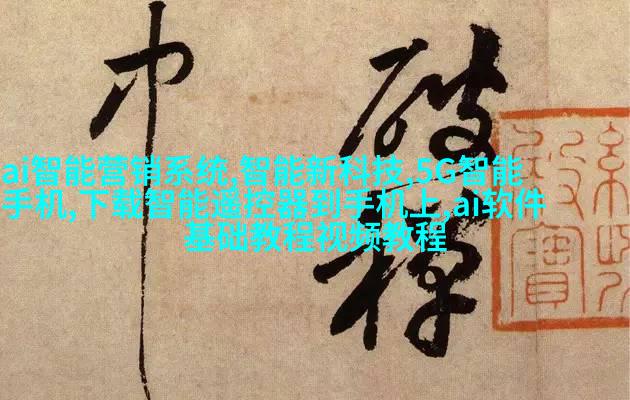 破禅
巾
ai智能营销系统,智能新科技,5G智能
手机,下载智能遥控器到手机上,ai软件
基础教程视频教程